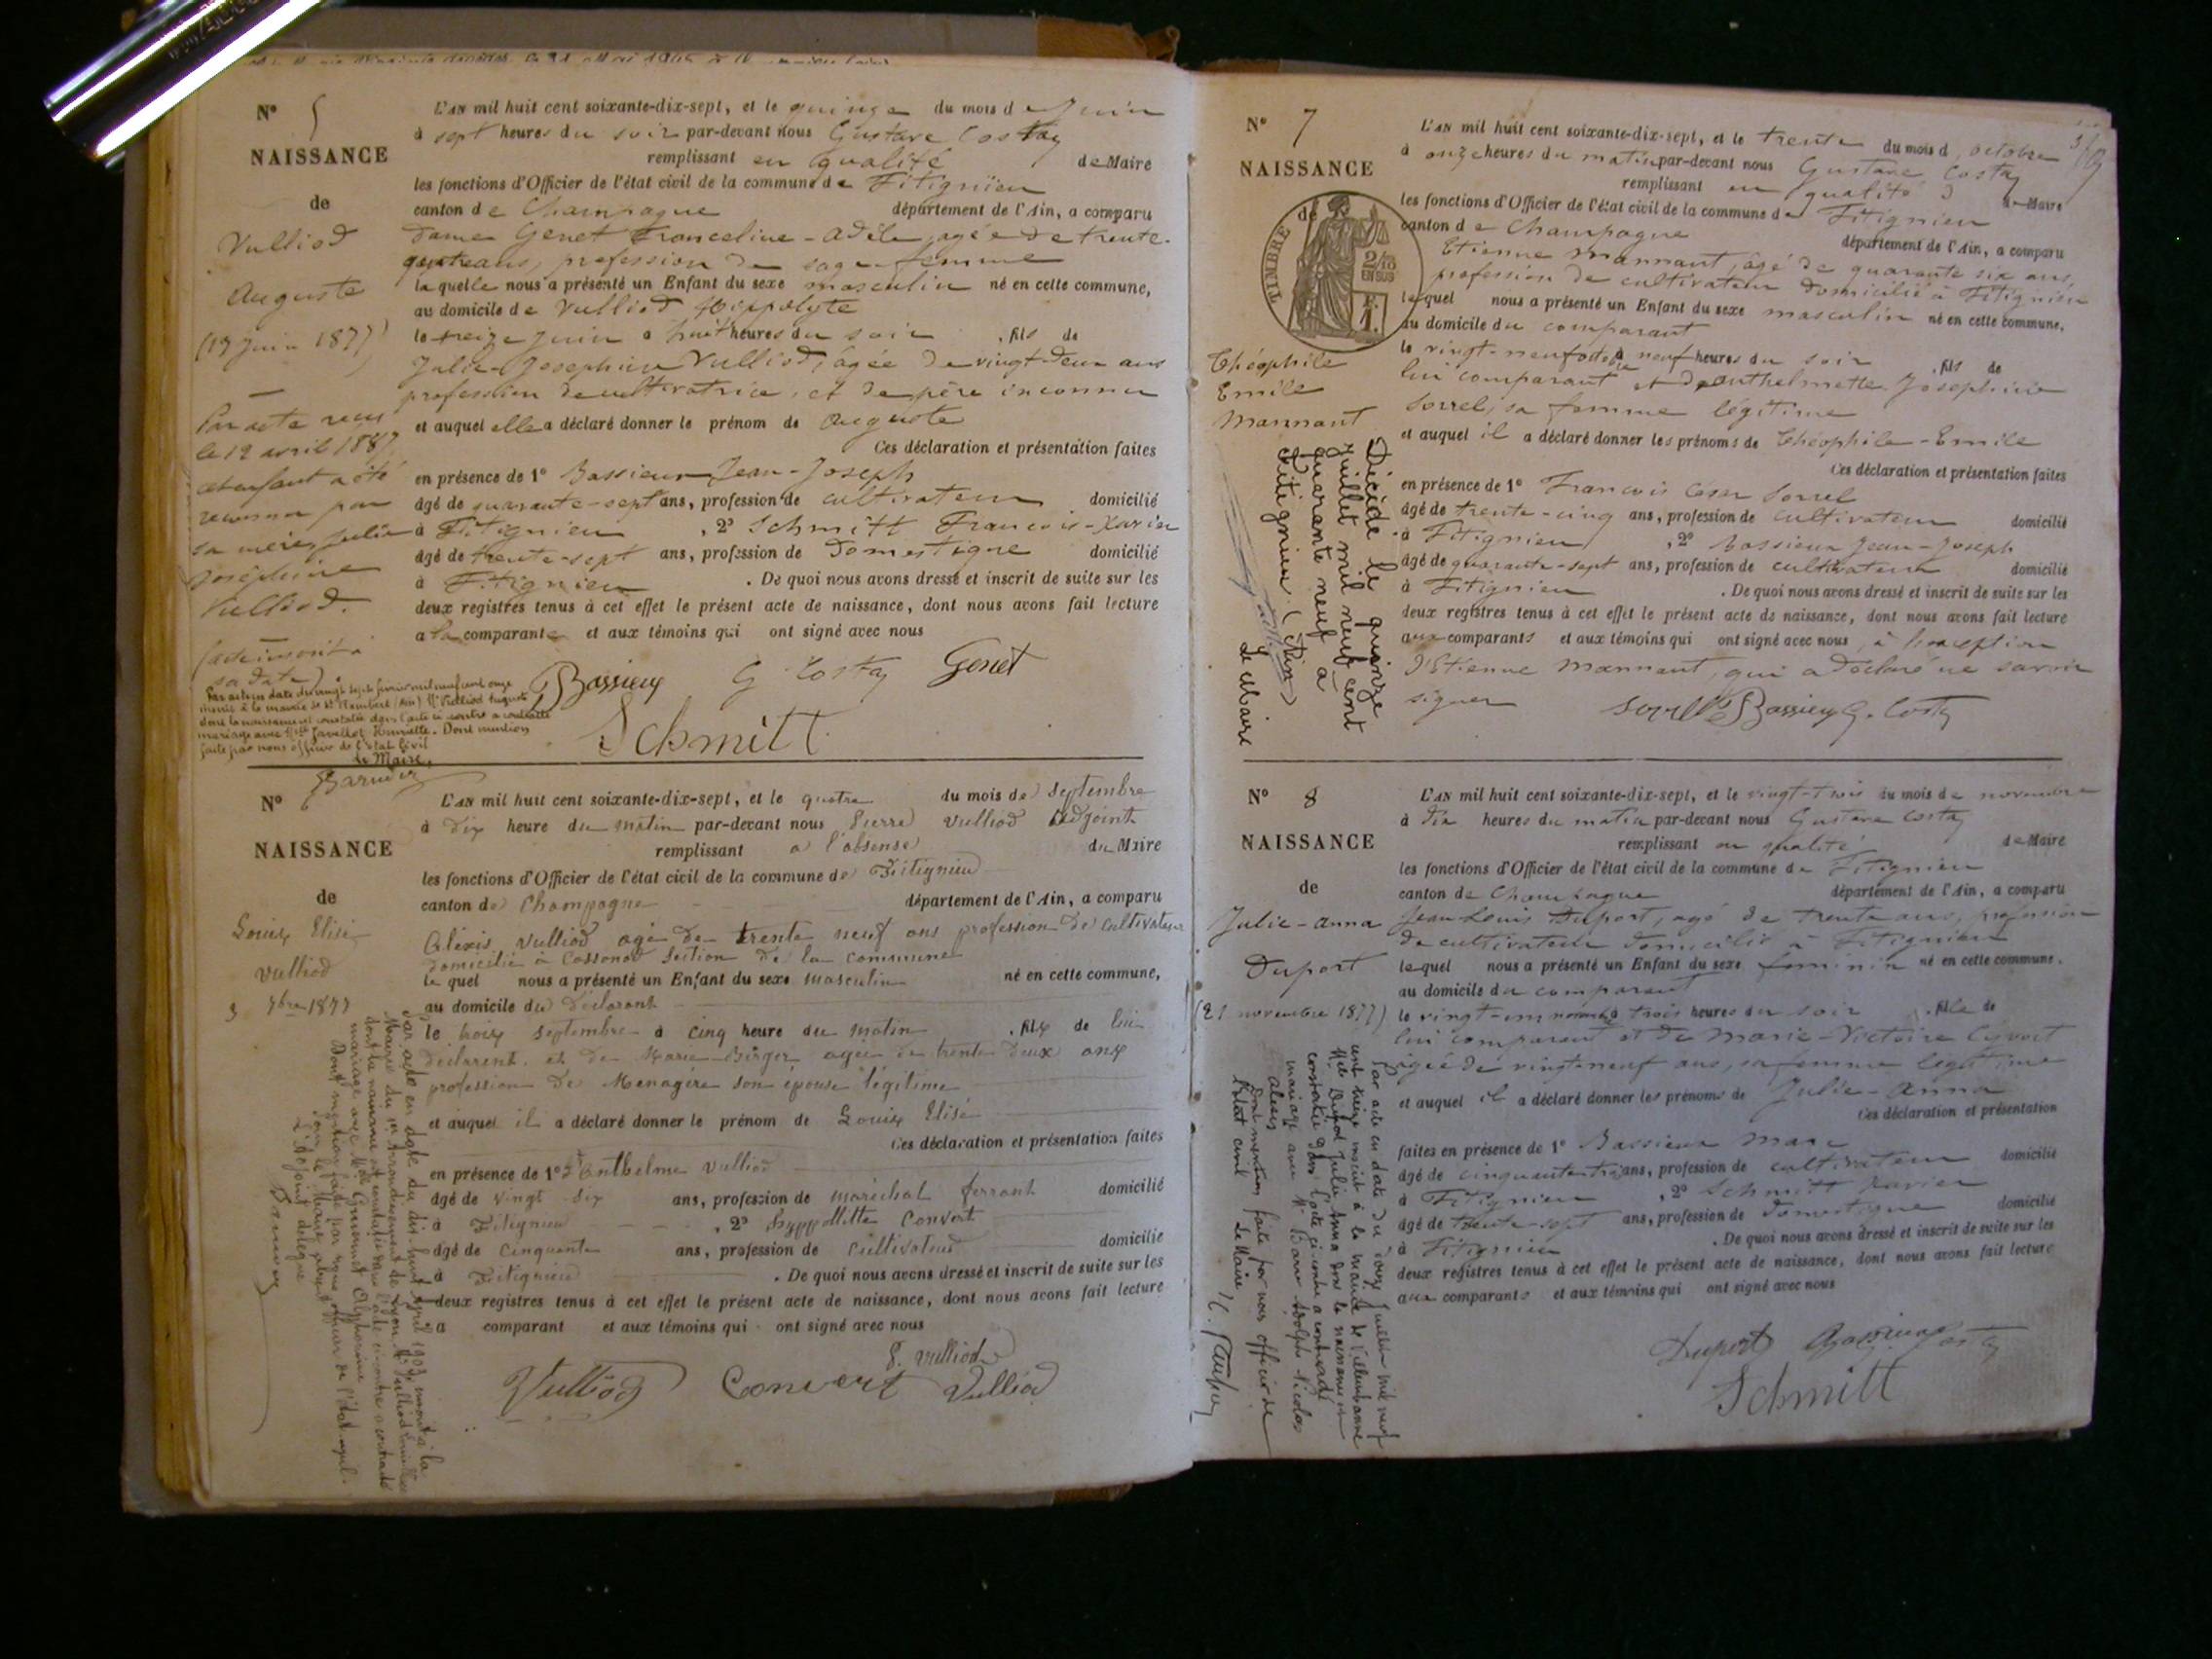 N° 5
NAISSANCE
de
Vulliod
Auguste
(13 juin 1877)
Par acte reçu
le 12 avril 1887,
cet enfant a été
reconnu par
sa mère, Julie
Joséphine
Vulliod.
(acte inscrit à
sa date).
le Maire,
L'AN mil huit cent soixante-dix-sept, et le quinze du mois de Juin
à sept heures du soir par-devant nous Gustave Costaz
remplissant en qualité de Maire
les fonctions d'Officier de l'état civil de la commune de Fitignieu
canton de Champagne département de l'Ain, a comparu
dame Genet Franceline-Adèle, agée de trente-
quatre ans, profession de sage-femme
laquelle nous a présenté un Enfant du sexe masculin né en cette commune,
au domicile de Vulliod Hippolyte
le treize juin à huit heures du soir, fils de
Julie-Josephine Vulliod, âgée de vingt-deux ans
profession de cultivatrice, et de père inconnu
et auquel elle a déclaré donner le prénom de Auguste
Ces déclaration et présentation faites
en présence de 1° Bassieux Jean-Joseph
âgé de quarante-sept ans, profession de cultivateur domicilié
à Fitignieu, 2° Schmitt Francois-Xavier
âgé de trente-sept ans, profession de domestique domicilié
à Fitignieu. De quoi nous avons dressé et inscrit de suite sur les
deux registres tenus à cet effet le présent acte de naissance, dont nous avons fait lecture
a la comparante et aux témoins qui ont signé avec nous
Bassieux G Costaz Genet
Schmitt
N° 6
NAISSANCE
de
Louis Elisé
Vulliod
3 7bre 1877
L'AN mil huit cent soixante-dix-sept, et le quatre du mois de septembre
à dix heure du matin par-devant nous Pierre Vulliod Adjoint
remplissant a l'absense du Maire
les fonctions d'Officier de l'état civil de la commune de Fitignieu
canton de Champagne département de l'Ain, a comparu
Alexis Vulliod agé de trente neuf ans profession de cultivateur
domicilié à Cossonod Section de la commune
lequel nous a présenté un Enfant du sexe masculin né en cette commune,
au domicile du Déclarant
le trois septembre à cinq heure du matin, fils de lui
déclarent et de Marie agée de trente deux ans
profession de Menagère son épouse légitime
et auquel il a déclaré donner le prénom de Louis Elisé
Ces déclaration et présentation faites
en présence de 1° Anthelme Vulliod
âgé de vingt six ans, profession de maréchal ferrant domicilié
à Fitignieu, 2° Convert
âgé de cinquante ans, profession de cultivateur domicilié
à Fitignieu. De quoi nous avons dressé et inscrit de suite sur les
deux registres tenus à cet effet le présent acte de naissance, dont nous avons fait lecture
a comparant et aux témoins qui ont signé avec nous
P. Vulliod
Vulliod Convert Vulliod
N° 7
NAISSANCE
de
TIMBRE
2/10
EN SUS
Théophile
Emile
Mannant
Décédé le quinze
Juillet mil neuf cent
quarante neuf à
Fitignieu (Ain)
Le Maire
L'AN mil huit cent soixante-dix-sept, et le trente du mois d'octobre
à onze heures du matin par-devant nous Gustave Costaz
remplissant en qualité de Maire
les fonctions d'Officier de l'état civil de la commune de Fitignieu
canton de Champagne département de l'Ain, a comparu
Etienne Mannant, âgé de quarante six ans,
profession de cultivateur domicilié à Fitignieu
lequel nous a présenté un Enfant du sexe masculin né en cette commune,
au domicile du comparant
le vingt-neuf octobre à neuf heures du soir, fils de
lui comparant et d'Anthelmette Josephine
Sorrel, sa femme légitime
et auquel il a déclaré donner les prénoms de Théophile-Emile
Ces déclaration et présentation faites
en présence de 1° Francois César Sorrel
âgé de trente-cinq ans, profession de cultivateur domicilié
à Fitignieu, 2° Bassieux Jean-Joseph
âgé de quarante-sept ans, profession de cultivateur domicilié
à Fitignieu. De quoi nous avons dressé et inscrit de suite sur les
deux registres tenus à cet effet le présent acte de naissance, dont nous avons fait lecture
aux comparants et aux témoins qui ont signé avec nous, à l'exception
d'Etienne Mannant, qui a déclaré ne savoir
signer
Sorrel Bassieux G. Costaz
N° 8
NAISSANCE
de
Julie-Anna
Duport
(21 novembre 1877)
L'AN mil huit cent soixante-dix-sept, et le vingt-trois du mois de novembre
à dix heures du matin par-devant nous Gustave Costaz
remplissant en qualité de Maire
les fonctions d'Officier de l'état civil de la commune de Fitignieu
canton de Champagne département de l'Ain, a comparu
Jean-Louis Duport, agé de trente ans, profession
de cultivateur domicilié à Fitignieu
lequel nous a présenté un Enfant du sexe féminin né en cette commune,
au domicile du comparant
le vingt-un novembre à trois heures du soir, fille de
lui comparant et de Marie-Victoire
agée de vingt-neuf ans, sa femme légitime
et auquel il a déclaré donner les prénoms de Julie-Anna
Ces déclaration et présentation
faites en présence de 1° Bassieux Marc
âgé de cinquante-trois ans, profession de cultivateur domicilié
à Fitignieu, 2° Schmitt Xavier
âgé de trente-sept ans, profession de domestique domicilié
à Fitignieu. De quoi nous avons dressé et inscrit de suite sur les
deux registres tenus à cet effet le présent acte de naissance, dont nous avons fait lecture
aux comparants et aux témoins qui ont signé avec nous
Duport Bassieux Costaz
Schmitt